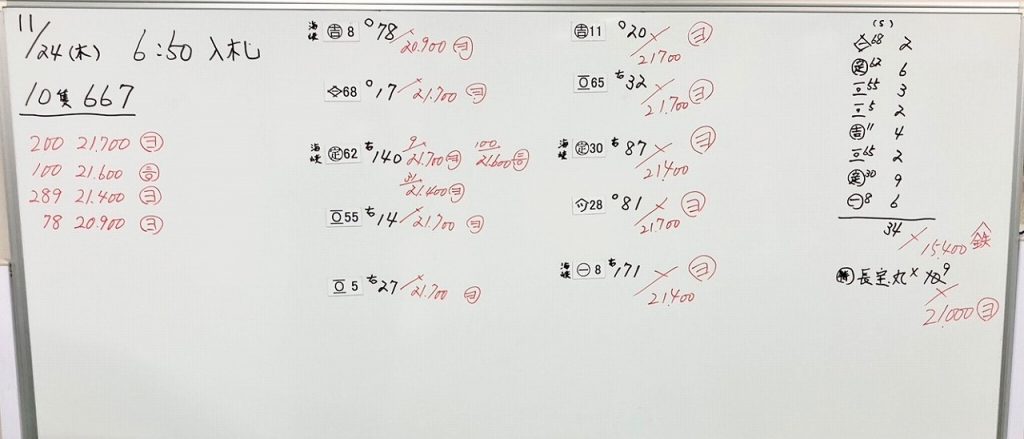 11/24(木) 6:50 入札
10隻 667
200 21.700 ヨ
100 21.600 吉
289 21.400 ヨ
78 20.900 ヨ
海峡 吉 8 78
20.900 ヨ
68 17 21.700 ヨ
海峡 定 62 右 140 9 21.700 ヨ 100 21.600 吉
31 21.400 ヨ
55 右 14 21.700 ヨ
5 右 27 21.700 ヨ
吉 11 20 ヨ
21.700
65 右 32 ヨ
21.700
海峡 定 30 右 87 ヨ
21.400
28 81 ヨ
21.700
海峡 一 8 右 171 ヨ
21.400
(S)
68 2
定 62 6
55 3
5 2
吉 11 4
65 2
定 30 9
一 8 6
34
15.400
長宝丸 9
21.000 ヨ